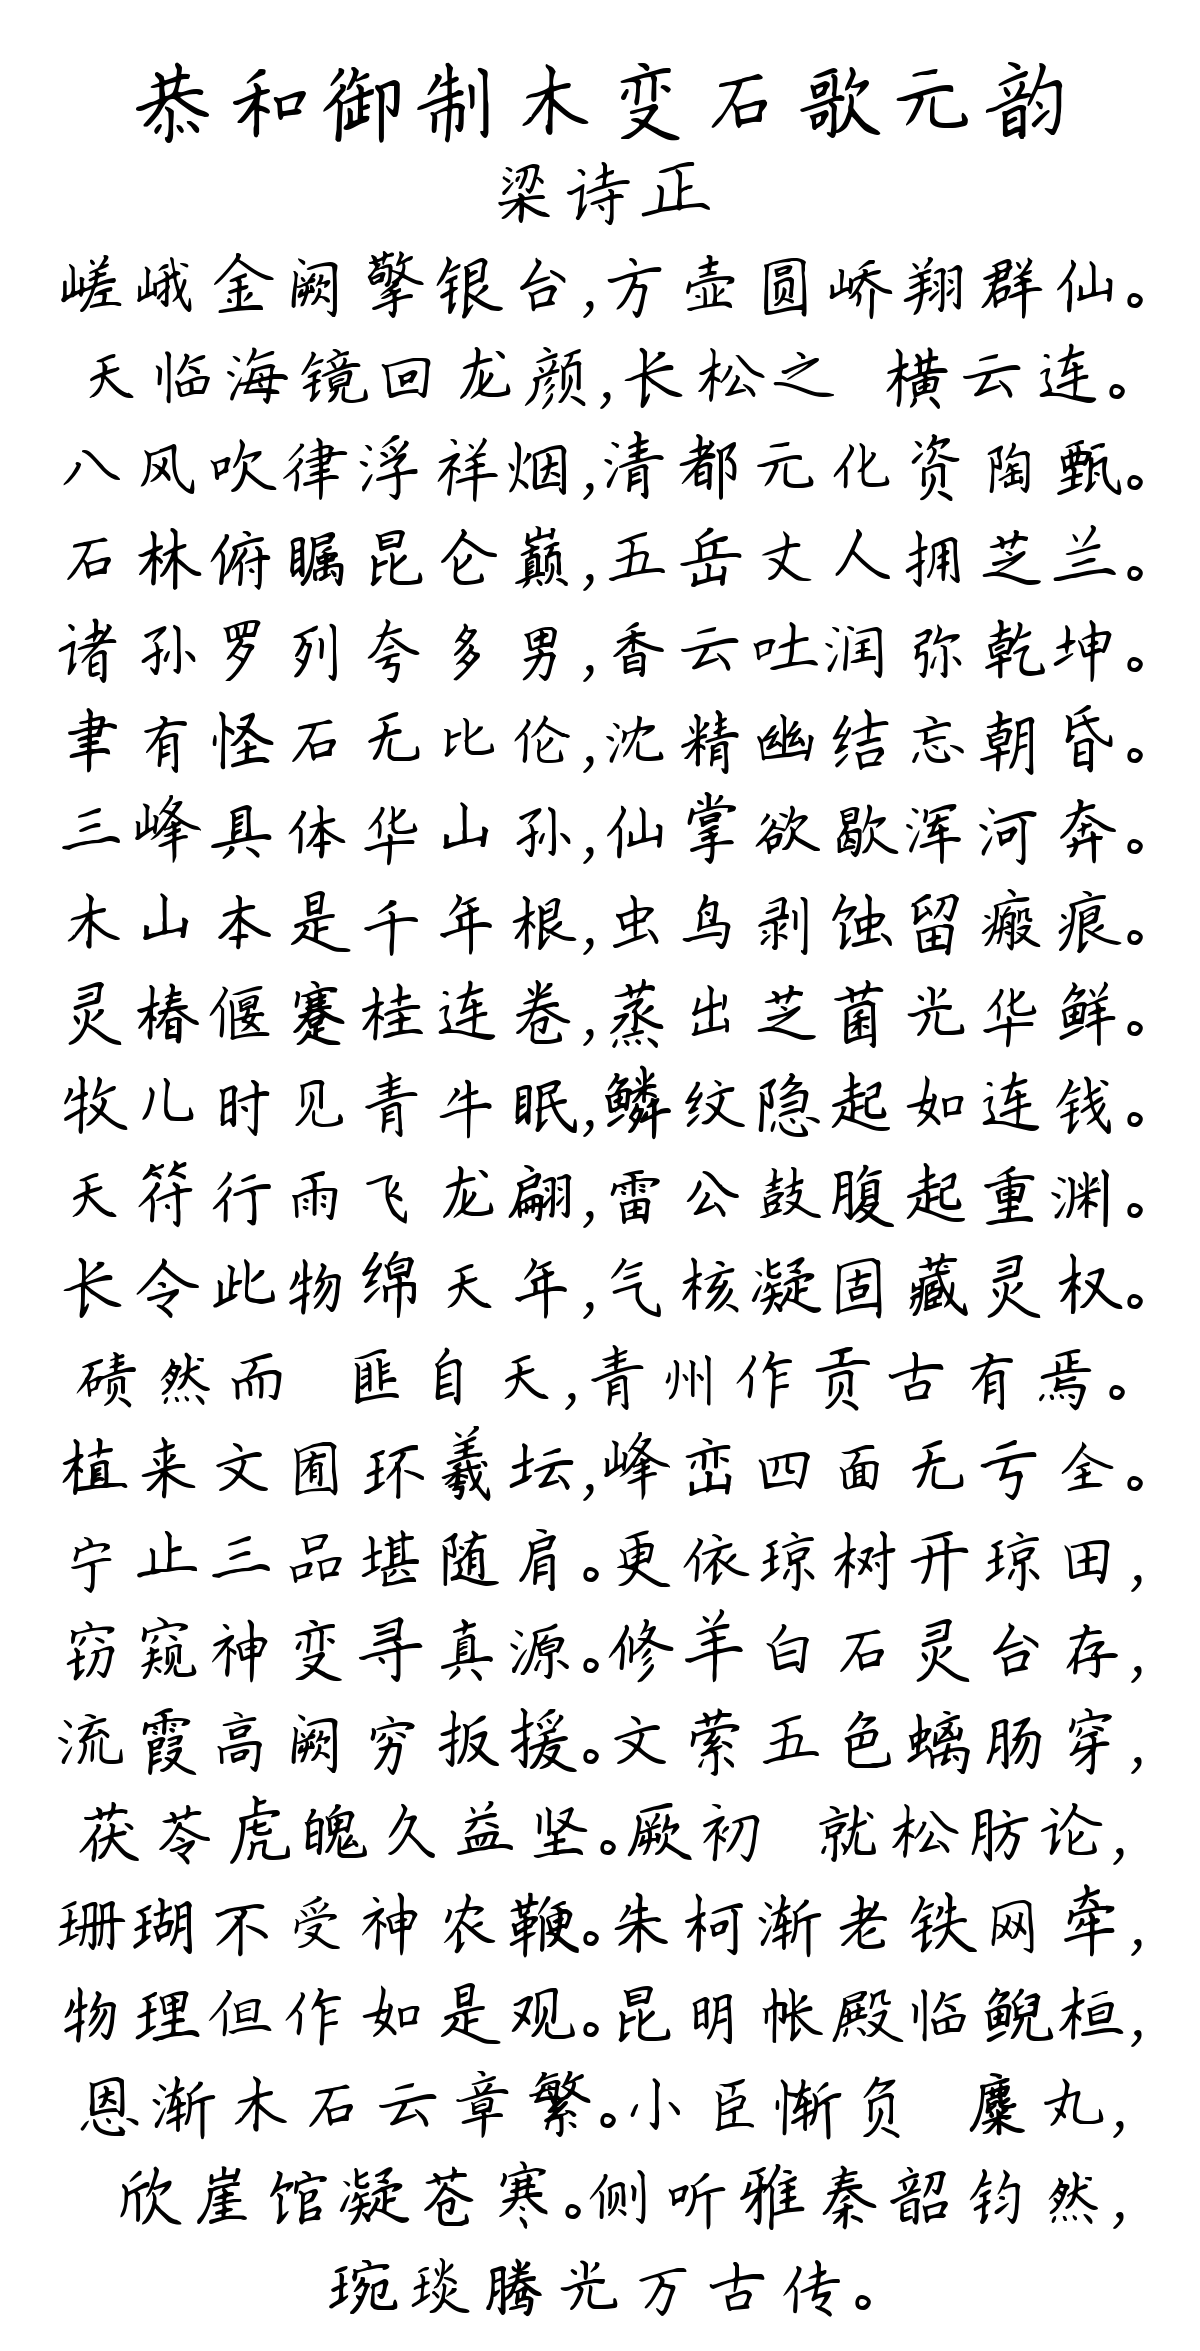 恭和御制木变石歌元韵
梁诗正
嵯峨金阙擎银台,方壶圆峤翔群仙。
天临海镜回龙颜,长松之 横云连。
八风吹律浮祥烟,清都元化资陶甄。
石林俯瞩昆仑巅,五岳丈人拥芝兰。
诸孙罗列夸多男,香云吐润弥乾坤。
聿有怪石无比伦,沈精幽结忘朝昏。
三峰具体华山孙,仙掌欲歇浑河奔。
木山本是千年根,虫鸟剥蚀留瘢痕。
灵椿偃蹇桂连卷,蒸出芝菌光华鲜。
牧儿时见青牛眠,鳞纹隐起如连钱。
天符行雨飞龙翩,雷公鼓腹起重渊。
长令此物绵天年,气核凝固藏灵权。
碛然而 匪自天,青州作贡古有焉。
植来文囿环羲坛,峰峦四面无亏全。
宁止三品堪随肩。更依琼树开琼田,
窃窥神变寻真源。修羊白石灵台存,
流霞高阙穷扳援。文萦五色螭肠穿,
茯苓虎魄久益坚。厥初 就松肪论,
珊瑚不受神农鞭。朱柯渐老铁网牵,
物理但作如是观。昆明帐殿临鲵桓,
恩渐木石云章繁。小臣惭负 麋丸,
欣崖馆凝苍寒。侧听雅秦韶钧然,
琬琰腾光万古传。